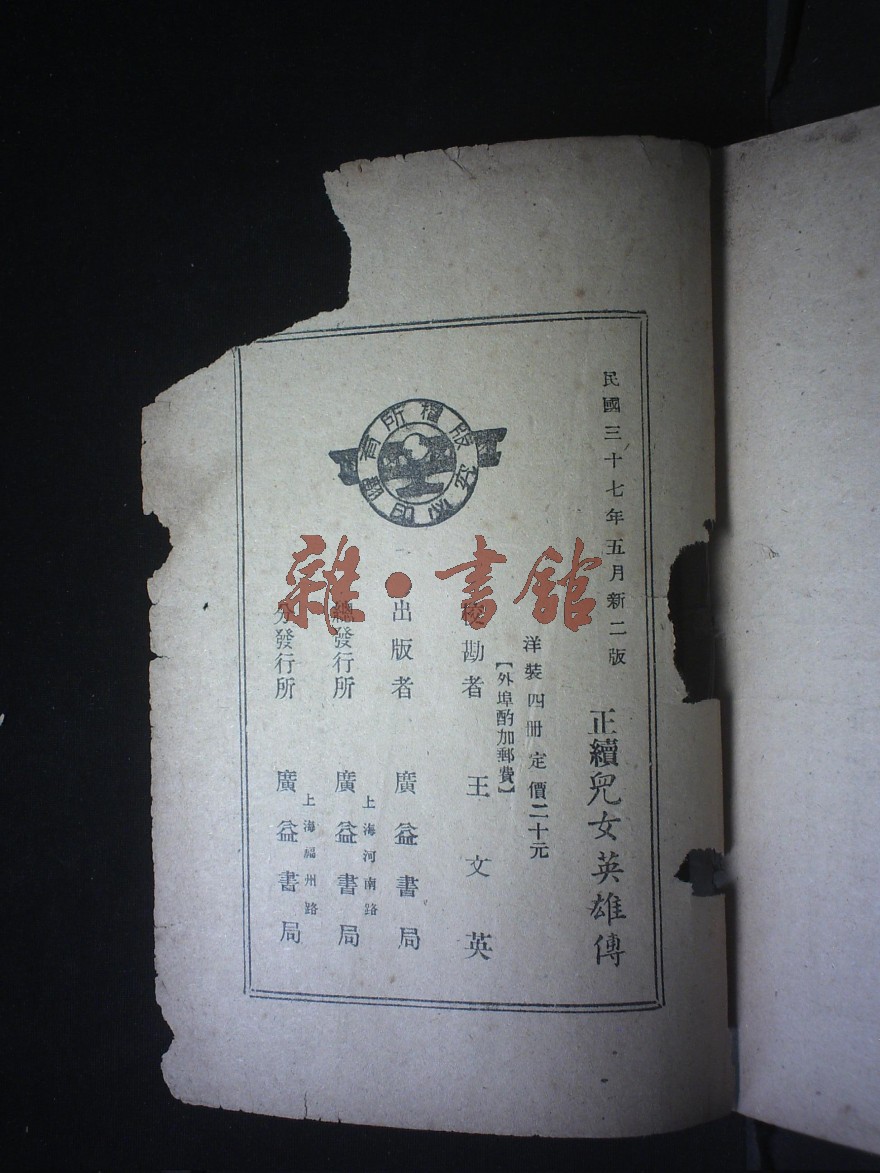 民國三十七年五月新二版
正續兒女英雄傳
洋裝四册定價二十元
【外埠酌加郵費】
校勘者 王文英
出版者 廣益書局
總發行所 上海河南路 廣益書局
分發行所 上海福州路 廣益書局
版權所有翻印必究
雜·書館